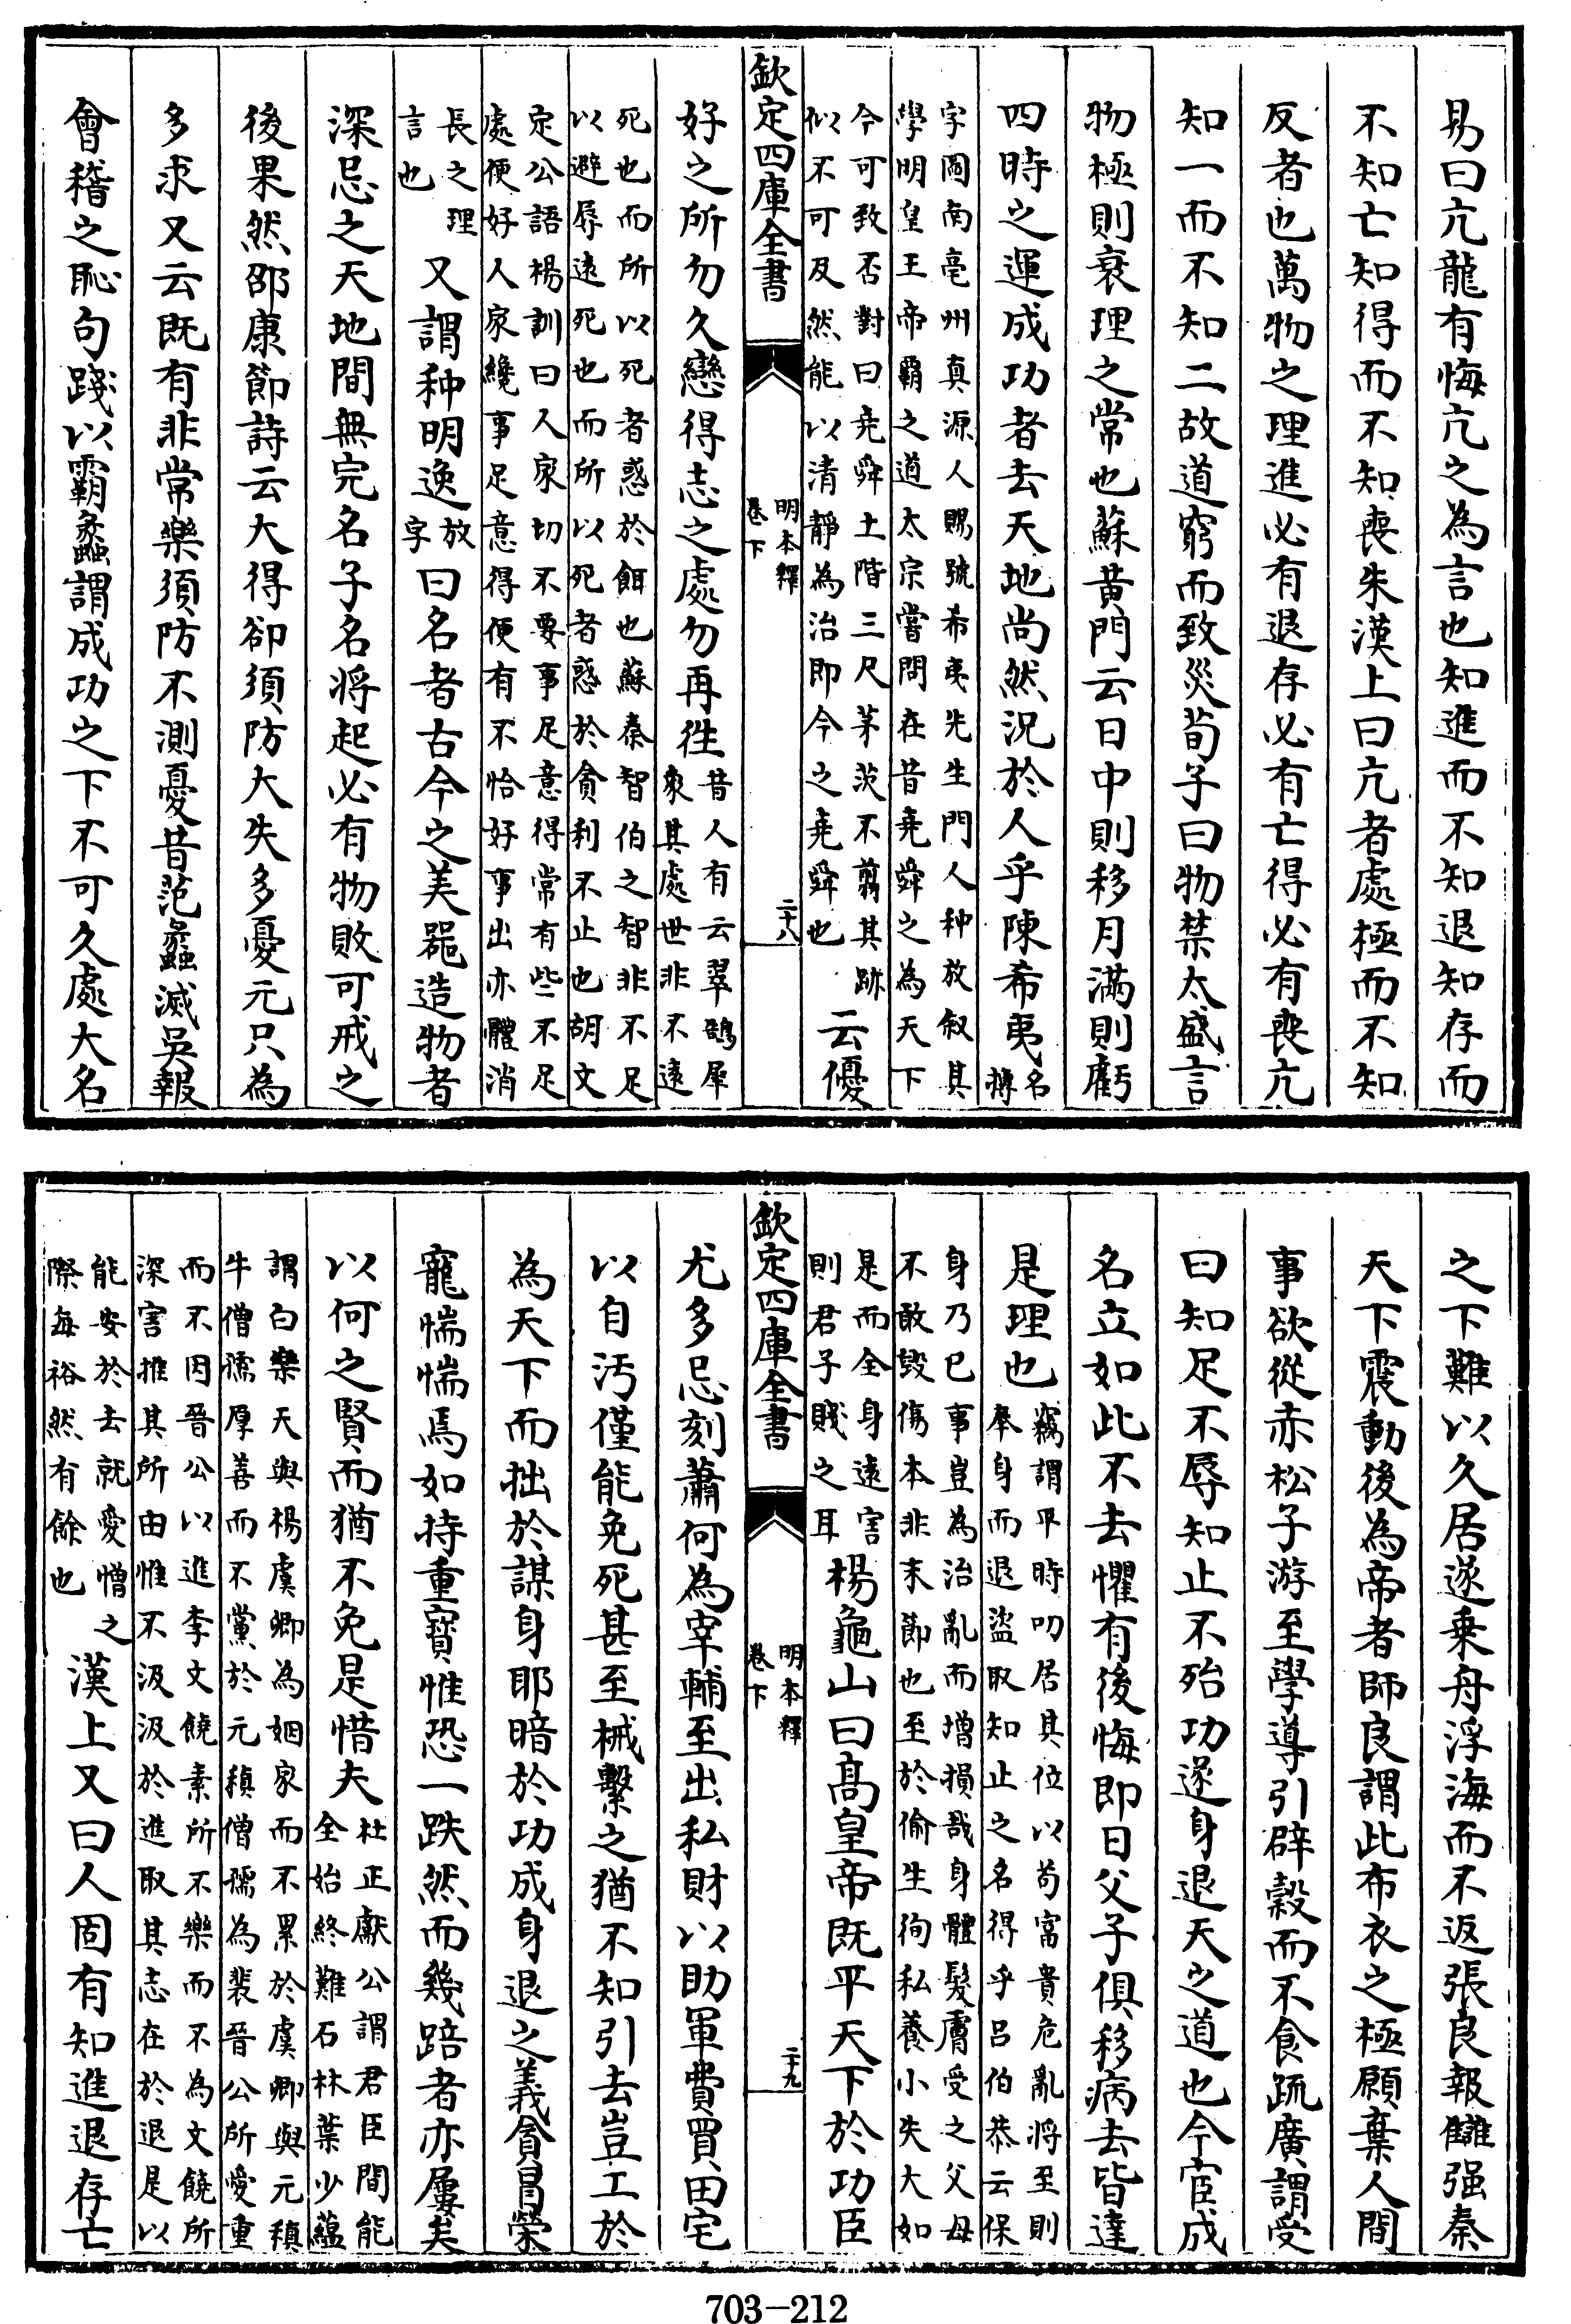 易曰亢龍有悔亢之為言也知進而不知退知存而
不知亡知得而不知喪朱漢上曰亢者處極而不知
反者也萬物之理進必有退存必有亡得必有喪亢
知一而不知二故道窮而致災荀子曰物禁太盛言
物極則衰理之常也蘇黃門云日中則移月滿則虧
四時之運成功者去天地尚然況於人乎陳希夷名
摶
字圖南亳州真源人賜號希夷先生門人种放叙其
學明皇王帝霸之道太宗嘗問在昔堯舜之為天下
今可致否對曰堯舜土階三尺茅茨不翦其跡
似不可及然能以清靜為治即今之堯舜也
云優
欽定四庫全書
明本釋
卷下
二十八
好之所勿久戀得志之處勿再往
昔人有云翠鵠犀
象其處世非不遠
死也而所以死者惑於餌也蘇秦智伯之智非不足
以避辱遠死也而所以死者惑於貪利不止也胡文
定公語楊訓曰人家切不要事足意得常有些不足
處便好人家纔事足意得便有不恰好事出亦體消
長之理
言也
又謂种明逸
放
字
曰名者古今之美器造物者
深忌之天地間無完名子名將起必有物敗可戒之
後果然邵康節詩云大得卻須防大失多憂元只為
多求又云既有非常樂須防不測憂昔范蠡滅吳報
會稽之恥句踐以霸蠡謂成功之下不可久處大名
之下難以久居遂乗舟浮海而不返張良報讎强秦
天下震動後為帝者師良謂此布衣之極願棄人間
事欲從赤松子游至學導引辟穀而不食疏廣謂受
曰知足不辱知止不殆功遂身退天之道也今宦成
名立如此不去懼有後悔即日父子俱移病去皆達
是理也
竊謂平時叨居其位以苟富貴危亂將至則
奉身而退盜取知止之名得乎呂伯恭云保
身乃已事豈為治亂而增損哉身體髮膚受之父母
不敢毀傷本非末節也至於偷生徇私養小失大如
是而全身遠害
則君子賤之耳
楊龜山曰髙皇帝既平天下於功臣
欽定四庫全書
明本釋
卷下
二十九
尤多忌刻蕭何為宰輔至出私財以助軍費買田宅
以自汚僅能免死甚至械繫之猶不知引去豈工於
為天下而拙於謀身耶暗於功成身退之義貪冒榮
寵惴惴焉如持重寳惟恐一跌然而幾踣者亦屢矣
以何之賢而猶不免是惜夫
杜正獻公謂君臣間能
全始終難石林葉少蘊
謂白樂天與楊虞卿為姻家而不累於虞卿與元稹
牛僧孺厚善而不黨於元稹僧孺為裴晉公所愛重
而不因晉公以進李文饒素所不樂而不為文饒所
深害推其所由惟不汲汲於進取其志在於退是以
能安於去就愛憎之
際每裕然有餘也
漢上又曰人固有知進退存亡
703-212